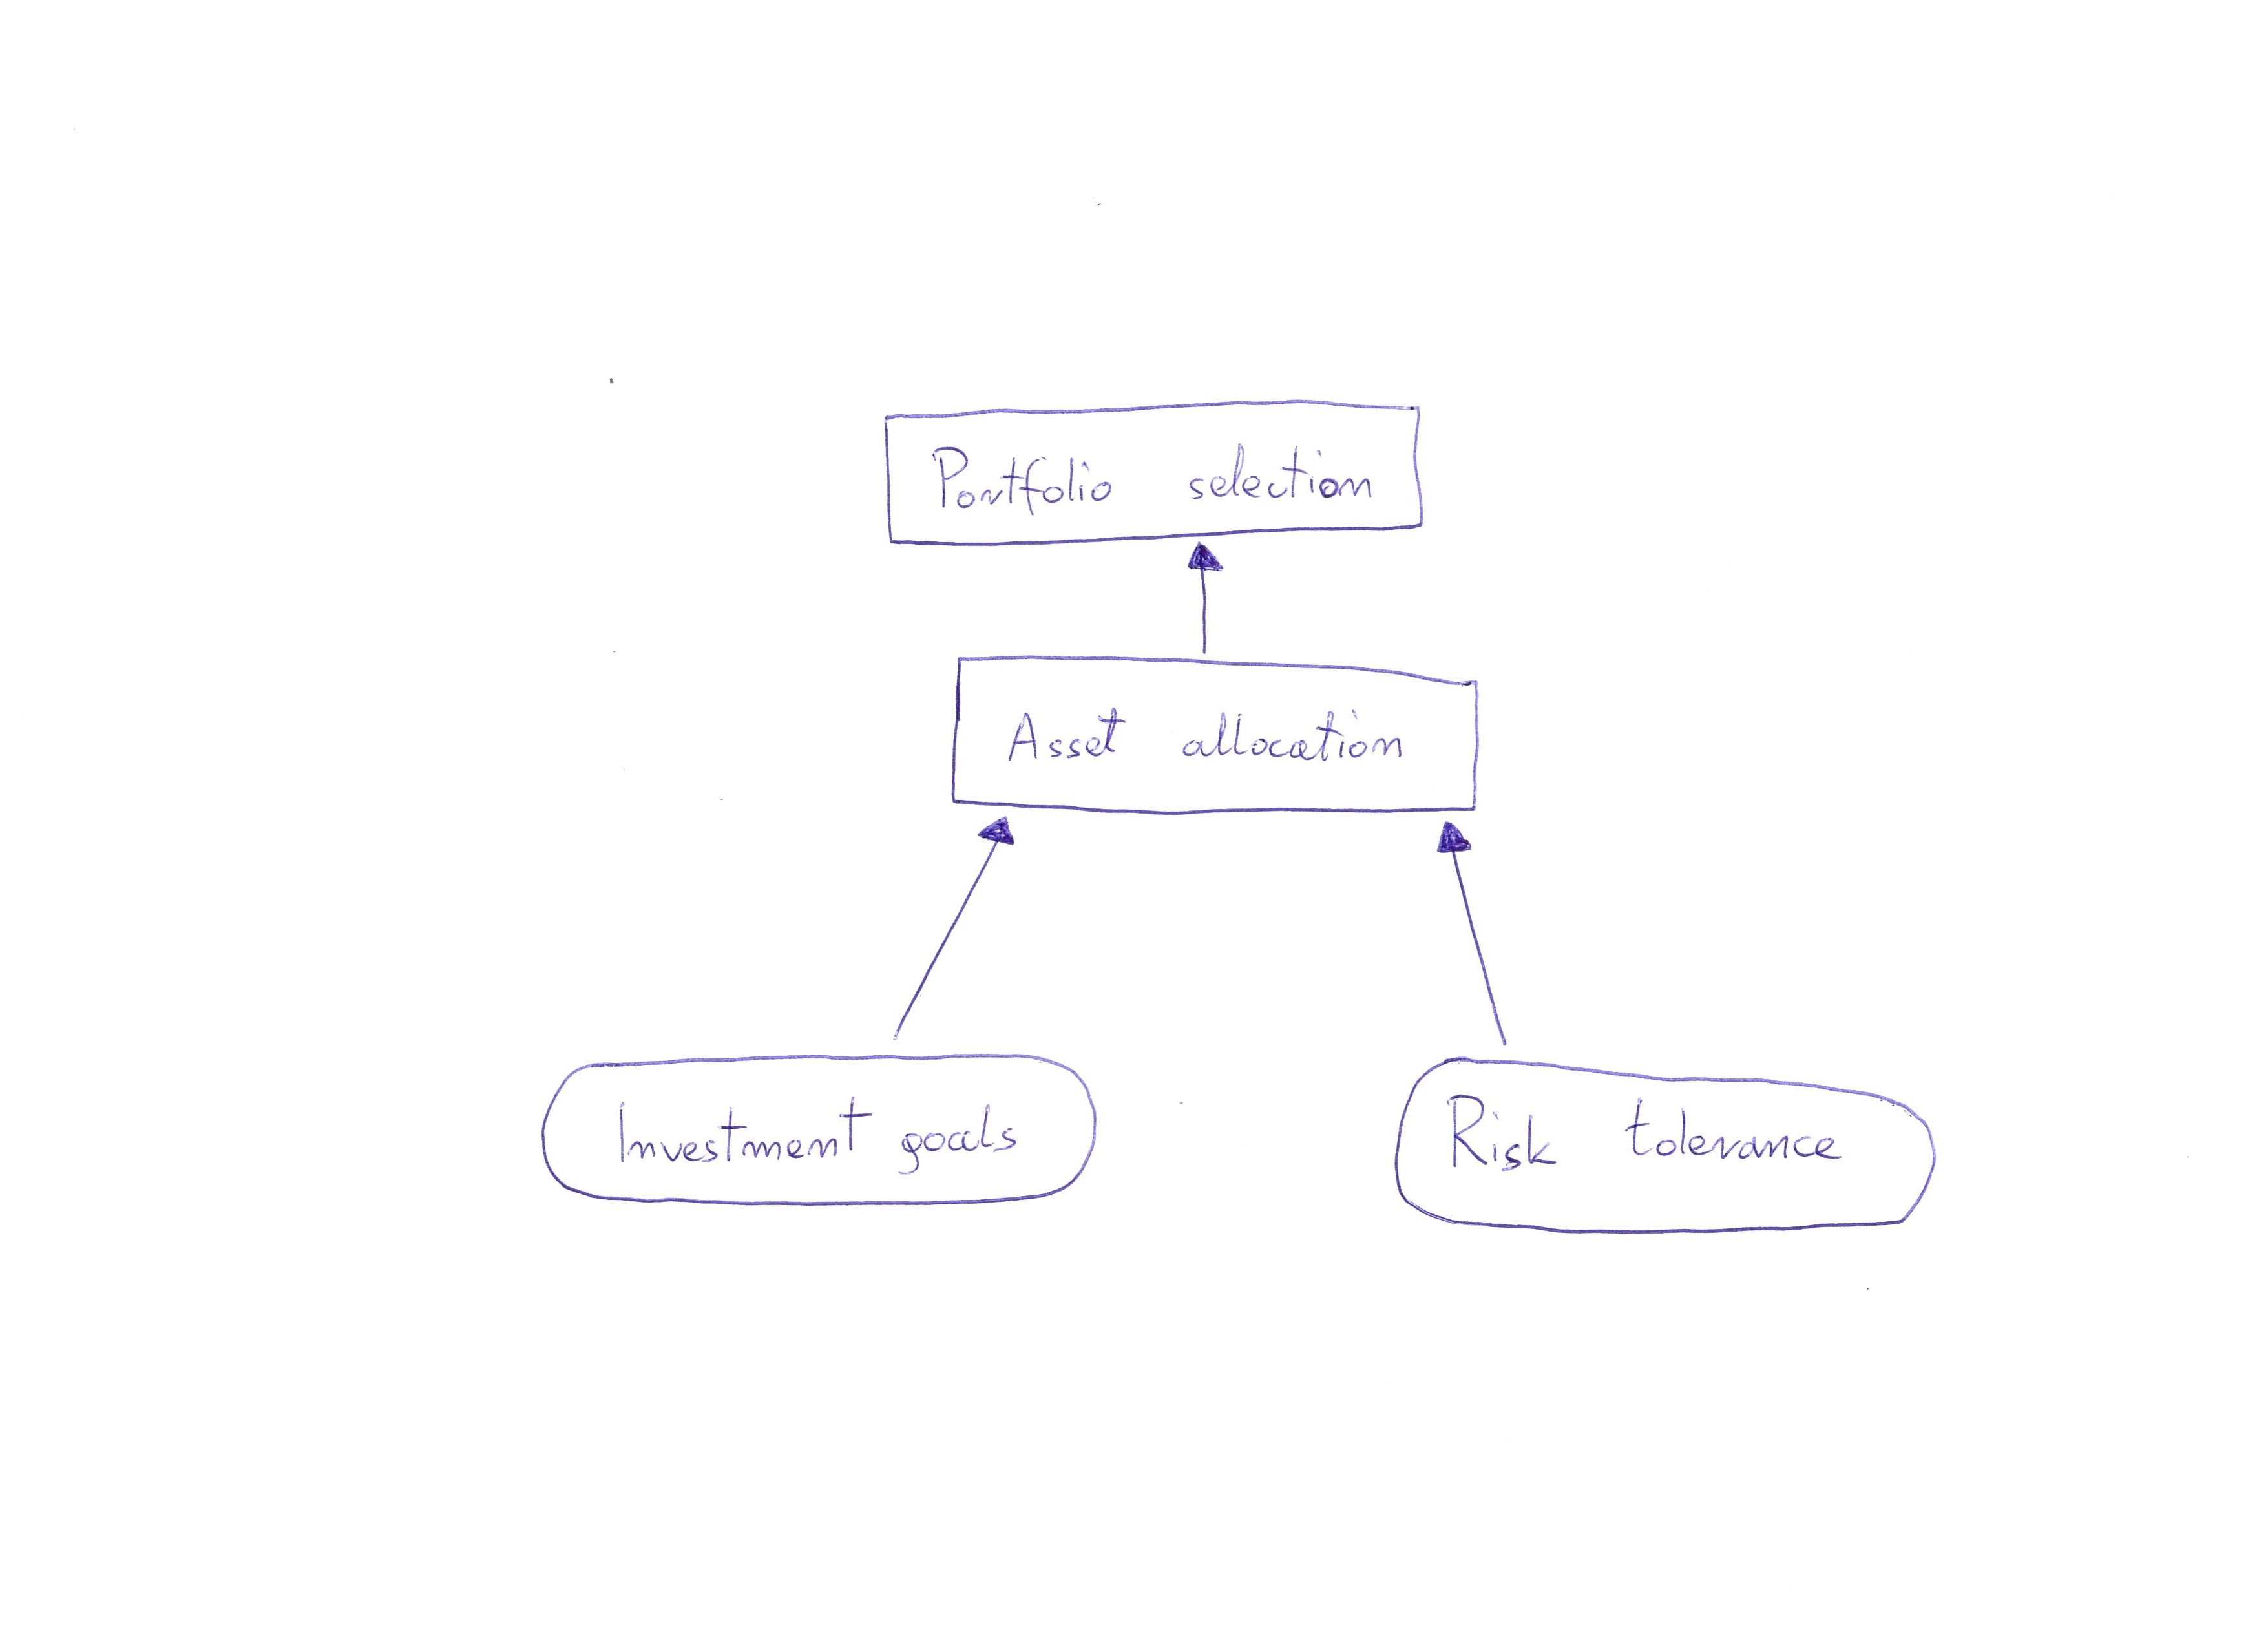 Portfolio selection
Asset allocation
Investment goals
Risk tolerance